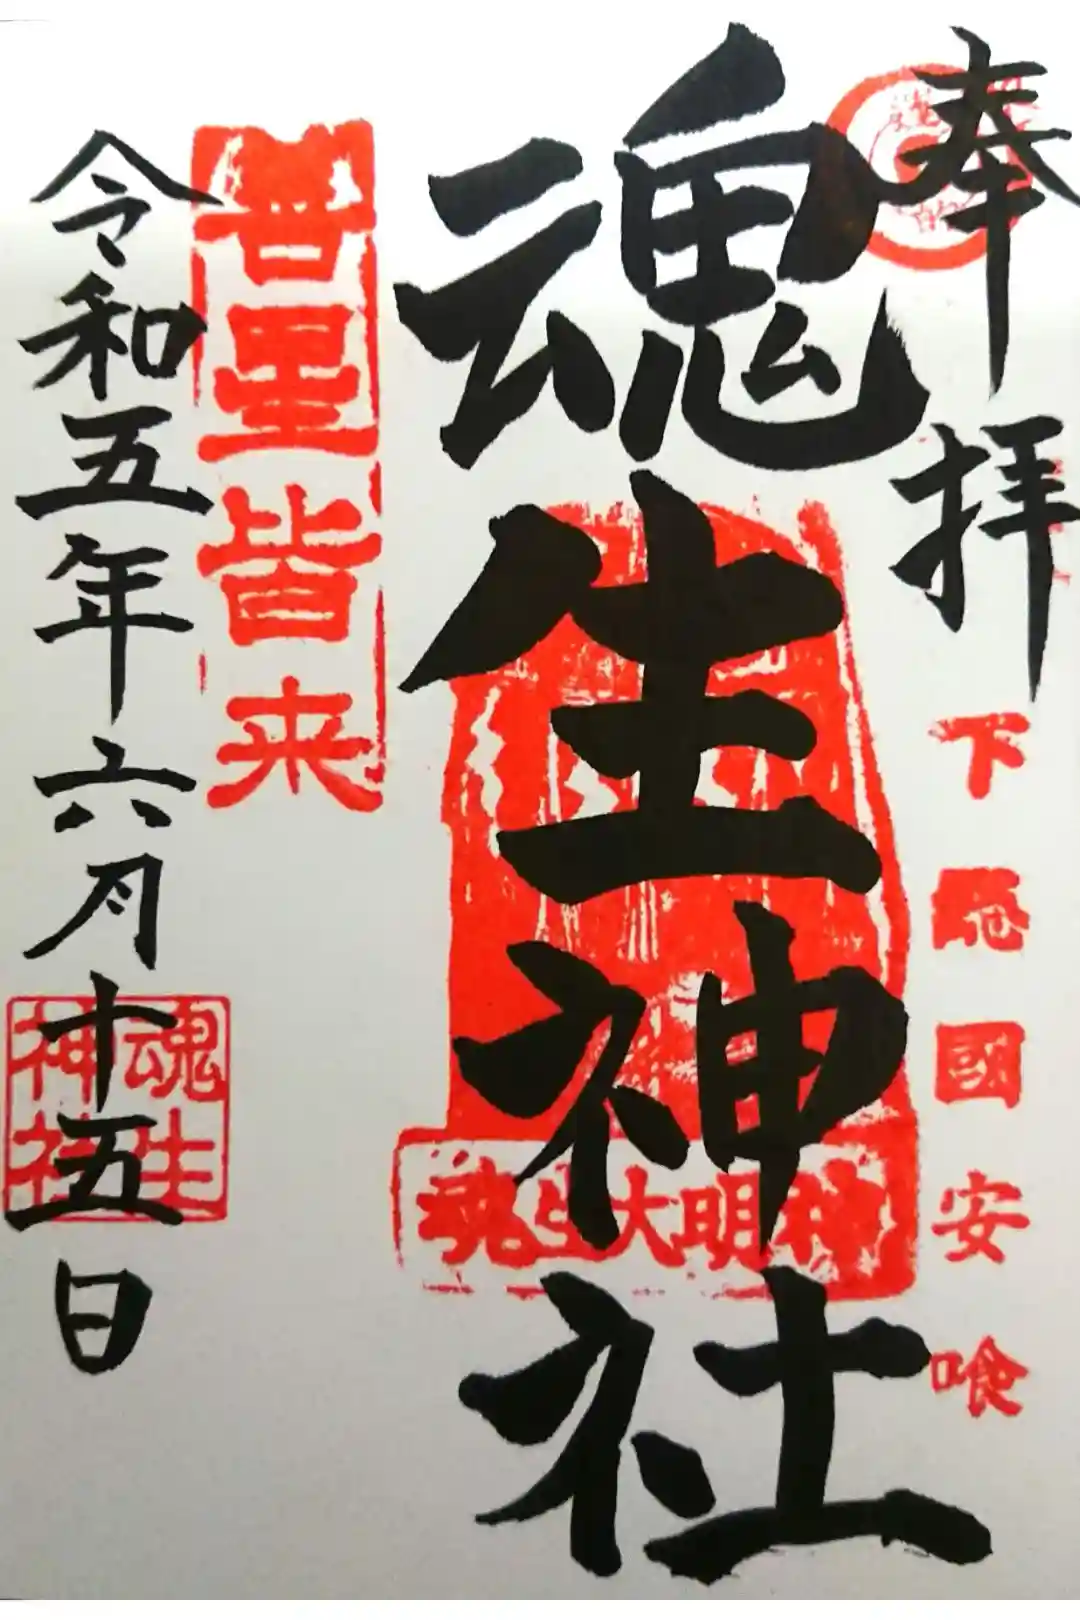 奉拝
下総國安喰
魂生神社
魂生大明神
善里皆来
令和五年六月十五日
魂生神社